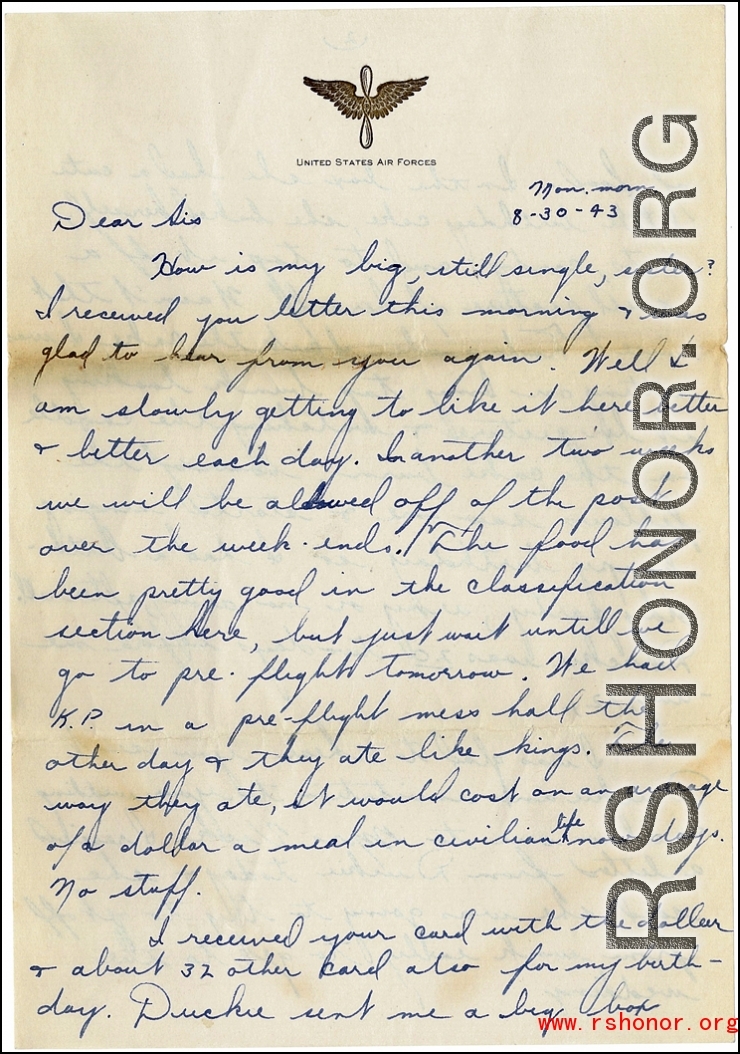 UNITED STATES AIR FORCES
Mon. morn
8-30-43
Dear Sis
How is my big, still single, sister?
I received you letter this morning & was
glad to hear from you again. Well I
am slowly getting to like it here better
& better each day. In another two weeks
we will be allowed off of the post
over the week-ends. The food has
been pretty good in the classification
section here, but just wait untill we
go to pre-flight tomorrow. We had
K.P. in a pre-flight mess hall the
other day & they ate like kings. The
way they ate, it would cost on an average
of a dollar a meal in civilian life now days.
No stuff.
I received your card with the dollar
& about 32 other card also for my birth-
day. Duckie sent me a big box
RSHONOR.ORG
www.rshonor.org